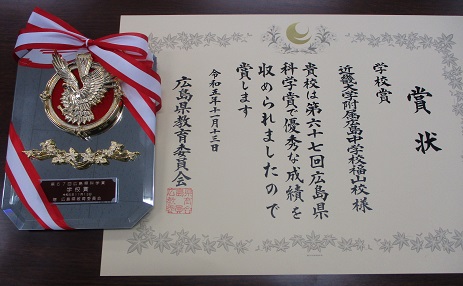 賞状
学校賞
近畿大学附属広島中学校福山校様
貴校は第六十七回広島県
科学賞で優秀な成績を
収められましたので
賞します
令和五年十一月十三日
広島県教育委員会
第67回広島県科学賞
学校賞
令和5年11月13日
広島県教育委員会